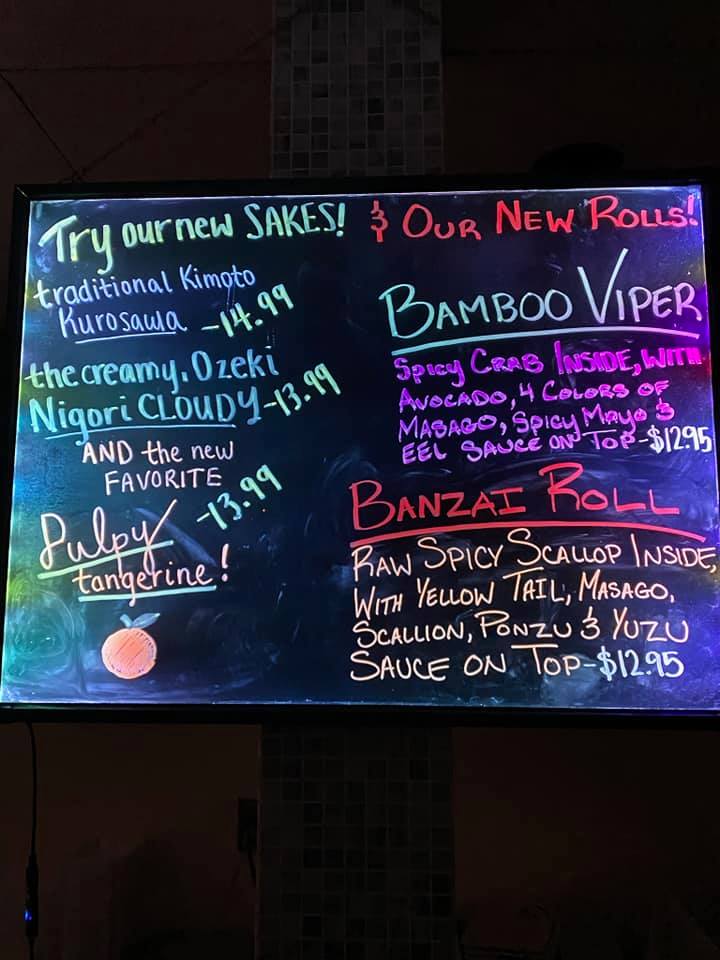 Try our new SAKES!
traditional Kimoto
Kurosawa -14.99
the creamy, Ozeki
Nigori CLOUDY -13.99
AND the new
FAVORITE
Pulpy -13.99
tangerine!
& OUR NEW ROLLS!
BAMBOO VIPER
SPICY CRAB INSIDE, WITH
AVOCADO, 4 COLORS OF
MASAGO, SPICY MAYO &
EEL SAUCE ON TOP -$12.95
BANZAI ROLL
RAW SPICY SCALLOP INSIDE,
WITH YELLOW TAIL, MASAGO,
SCALLION, PONZU & YUZU
SAUCE ON TOP -$12.95